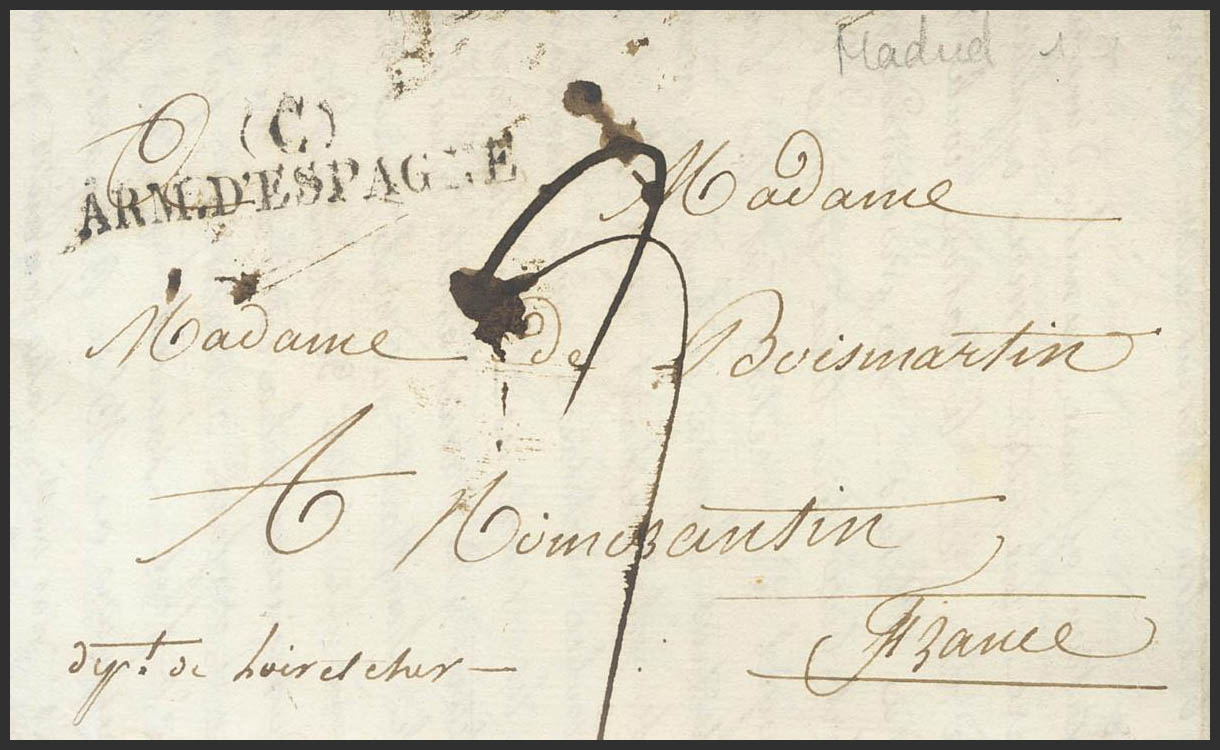 Madrid
(C)
ARM. D'ESPAGNE
Madame
Madame de Boismartin
A Romorantin
France
dept. de Loir et cher